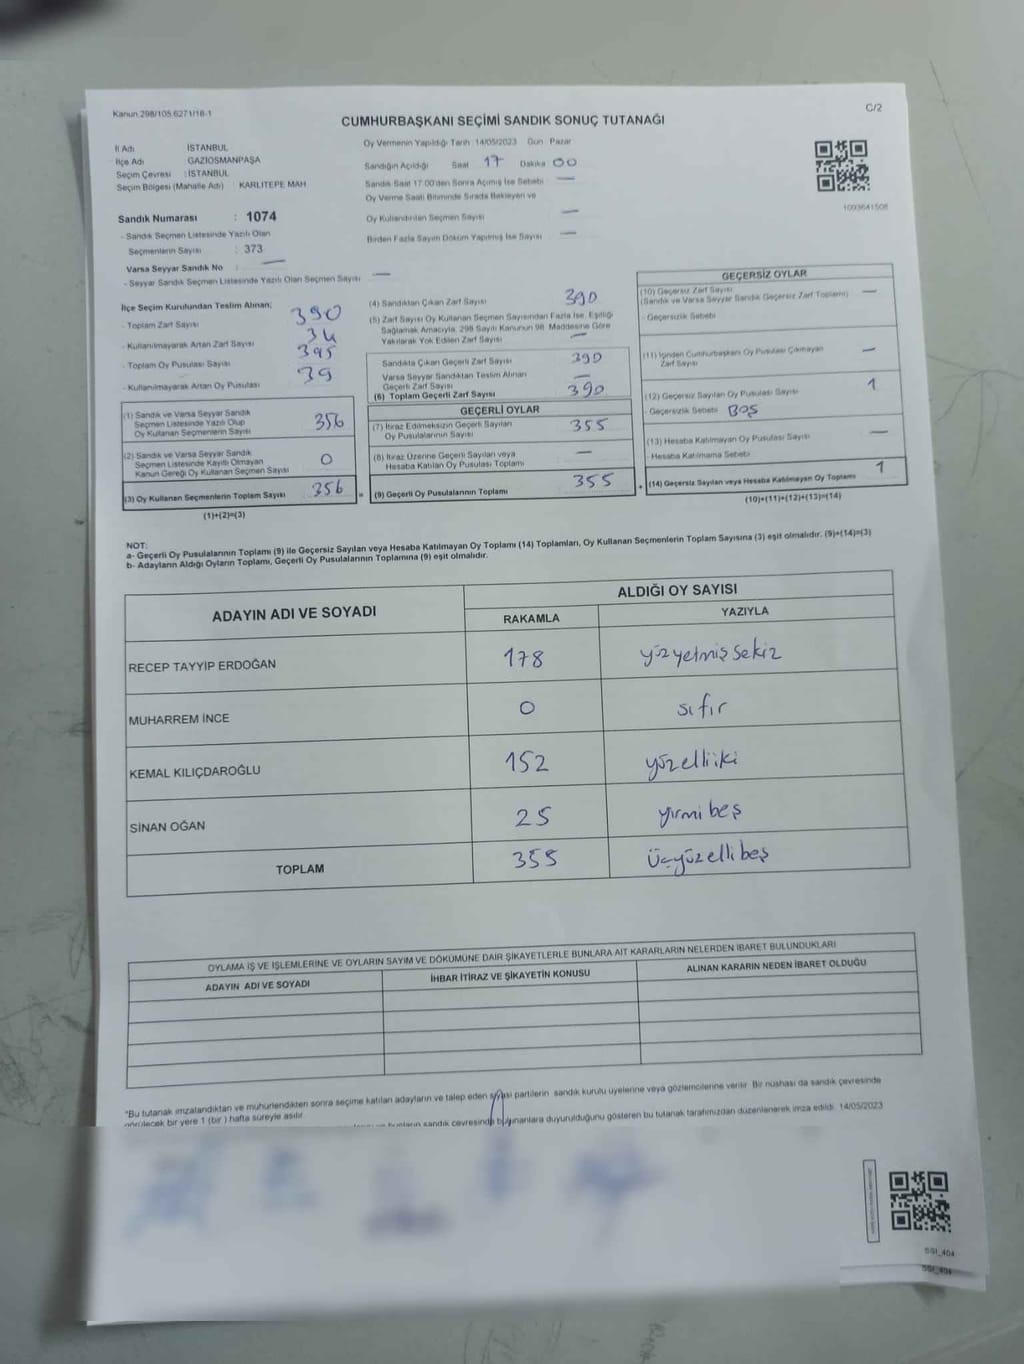 Kanun 298/105 6271/18-1
C/2
CUMHURBAŞKANI SEÇİMİ SANDIK SONUÇ TUTANAĞI
İl Adı : İSTANBUL
İlçe Adı : GAZİOSMANPAŞA
Seçim Çevresi : İSTANBUL
Seçim Bölgesi (Mahalle Adı) : KARLITEPE MAH
Sandık Numarası : 1074
- Sandık Seçmen Listesinde Yazılı Olan
Seçmenlerin Sayısı : 373
Varsa Seyyar Sandık No : —
- Seyyar Sandık Seçmen Listesinde Yazılı Olan Seçmen Sayısı —
Oy Vermenin Yapıldığı Tarih :14/05/2023 Gün: Pazar
Sandığın Açıldığı Saat 17 Dakika 00
Sandık Saat 17:00'den Sonra Açılmış İse Sebebi —
Oy Verme Saati Bitiminde Sırada Bekleyen ve
Oy Kullandırılan Seçmen Sayısı —
Birden Fazla Sayım Döküm Yapılmış İse Sayısı —
1093641508
İlçe Seçim Kurulundan Teslim Alınan;
- Toplam Zarf Sayısı 390
- Kullanılmayarak Artan Zarf Sayısı 34
- Toplam Oy Pusulası Sayısı 395
- Kullanılmayarak Artan Oy Pusulası 39
(1) Sandık ve Varsa Seyyar Sandık
Seçmen Listesinde Yazılı Olup
Oy Kullanan Seçmenlerin Sayısı 356
(2) Sandık ve Varsa Seyyar Sandık
Seçmen Listesinde Kayıtlı Olmayan
Kanun Gereği Oy Kullanan Seçmen Sayısı 0
(3) Oy Kullanan Seçmenlerin Toplam Sayısı 356 =
(1)+(2)=(3)
(4) Sandıktan Çıkan Zarf Sayısı 390
(5) Zarf Sayısı Oy Kullanan Seçmen Sayısından Fazla İse, Eşitliği
Sağlamak Amacıyla, 298 Sayılı Kanunun 98. Maddesine Göre
Yakılarak Yok Edilen Zarf Sayısı —
Sandıkta Çıkan Geçerli Zarf Sayısı 390
Varsa Seyyar Sandıktan Teslim Alınan
Geçerli Zarf Sayısı —
(6) Toplam Geçerli Zarf Sayısı 390
GEÇERLİ OYLAR
(7) İtiraz Edilmeksizin Geçerli Sayılan
Oy Pusulalarının Sayısı 355
(8) İtiraz Üzerine Geçerli Sayılan veya
Hesaba Katılan Oy Pusulası Toplamı —
(9) Geçerli Oy Pusulalarının Toplamı 355 +
GEÇERSİZ OYLAR
(10) Geçersiz Zarf Sayısı
(Sandık ve Varsa Seyyar Sandık Geçersiz Zarf Toplamı) —
- Geçersizlik Sebebi
(11) İçinden Cumhurbaşkanı Oy Pusulası Çıkmayan
Zarf Sayısı —
(12) Geçersiz Sayılan Oy Pusulası Sayısı 1
- Geçersizlik Sebebi BOŞ
(13) Hesaba Katılmayan Oy Pusulası Sayısı —
Hesaba Katılmama Sebebi
(14) Geçersiz Sayılan veya Hesaba Katılmayan Oy Toplamı 1
(10)+(11)+(12)+(13)=(14)
NOT:
a- Geçerli Oy Pusulalarının Toplamı (9) ile Geçersiz Sayılan veya Hesaba Katılmayan Oy Toplamı (14) Toplamları, Oy Kullanan Seçmenlerin Toplam Sayısına (3) eşit olmalıdır. (9)+(14)=(3)
b- Adayların Aldığı Oyların Toplamı, Geçerli Oy Pusulalarının Toplamına (9) eşit olmalıdır.
ADAYIN ADI VE SOYADI
ALDIĞI OY SAYISI
RAKAMLA YAZIYLA
RECEP TAYYİP ERDOĞAN 178 yüzyetmişsekiz
MUHARREM İNCE 0 sıfır
KEMAL KILIÇDAROĞLU 152 yüzelliiki
SİNAN OĞAN 25 yirmi beş
TOPLAM 355 Üçyüzellibeş
OYLAMA İŞ VE İŞLEMLERİNE VE OYLARIN SAYIM VE DÖKÜMÜNE DAİR ŞİKAYETLERLE BUNLARA AİT KARARLARIN NELERDEN İBARET BULUNDUKLARI
ADAYIN ADI VE SOYADI İHBAR İTİRAZ VE ŞİKAYETİN KONUSU ALINAN KARARIN NEDEN İBARET OLDUĞU
*Bu tutanak imzalandıktan ve mühürlendikten sonra seçime katılan adayların ve talep eden siyasi partilerin sandık kurulu üyelerine veya gözlemcilerine verilir. Bir nüshası da sandık çevresinde
görülecek bir yere 1 (bir) hafta süreyle asılır.
sandık çevresinde bulunanlara duyurulduğunu gösteren bu tutanak tarafımızdan düzenlenerek imza edildi. 14/05/2023
SSI_404
SSI_404